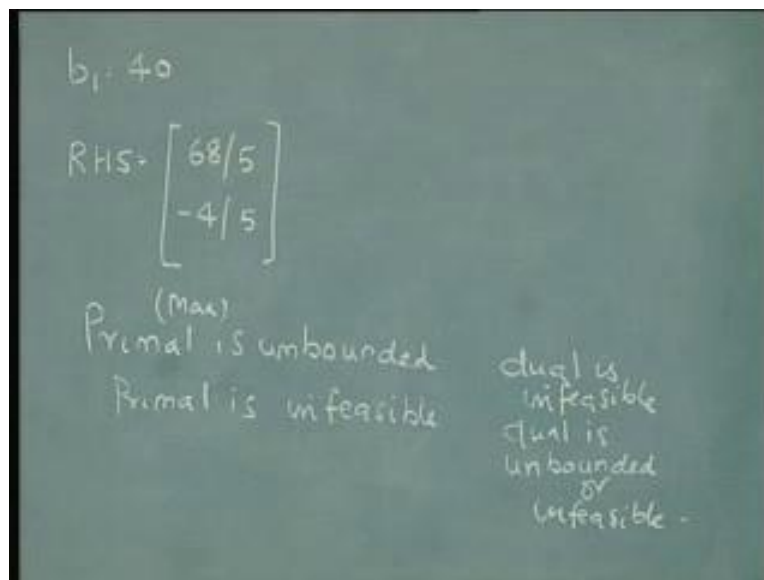 b₁ = 40
RHS = [68/5
-4/5]
(Max)
Primal is unbounded
dual is
infeasible
Primal is infeasible
dual is
unbounded
or
infeasible.